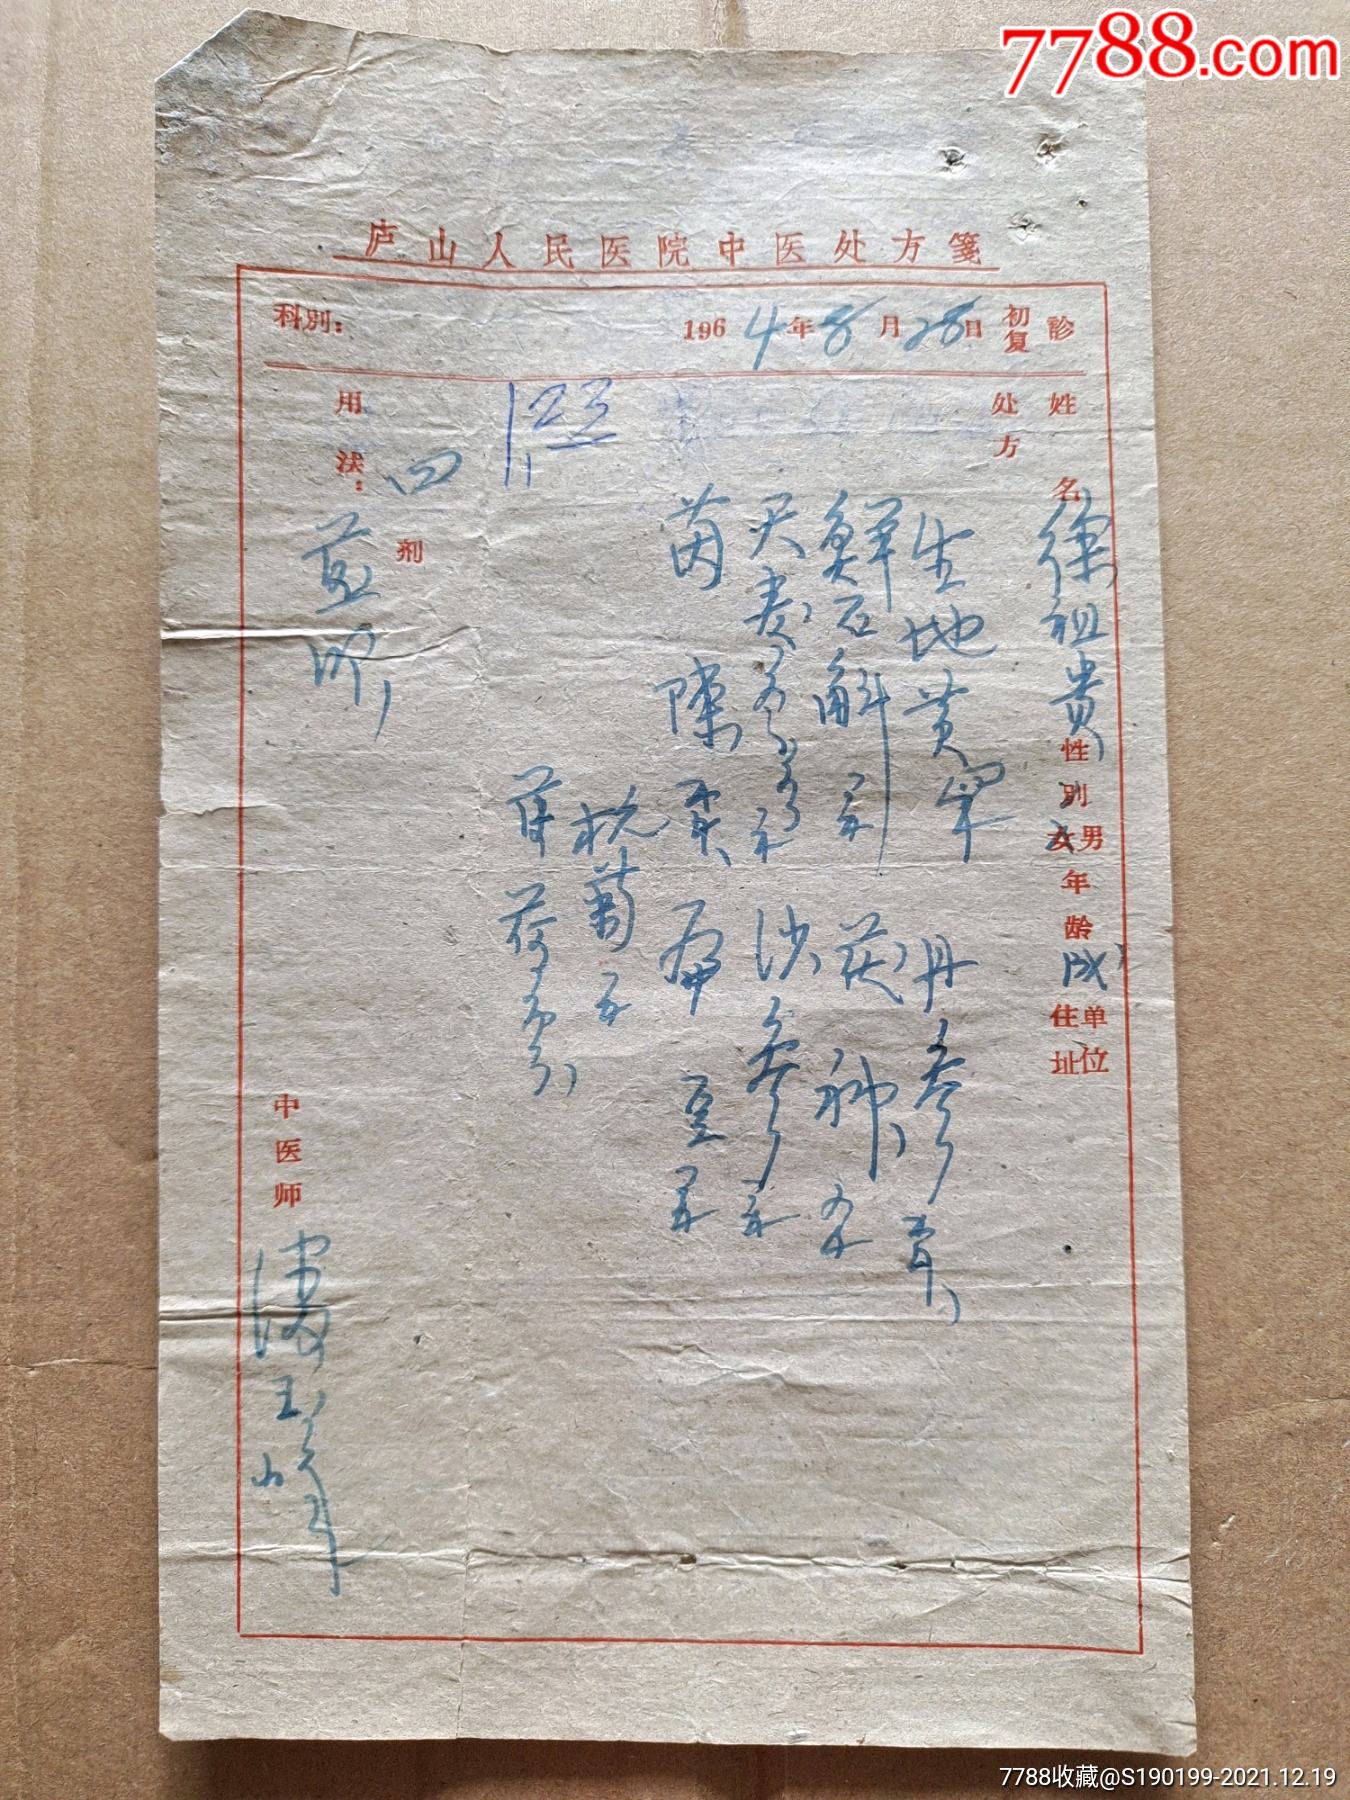 7788.com
庐山人民医院中医处方箋
科別: 1964年8月28日 初复 診
姓名 徐祖贵 性别 男女 年龄 成 单位 住址
处方
生地黄 丹参
鮮石斛 茯神
天麦冬 沙参
茵陈 扁豆
杭菊
薄荷
1.23
四剂
用法: 煎服
中医师
7788收藏@S190199-2021.12.19